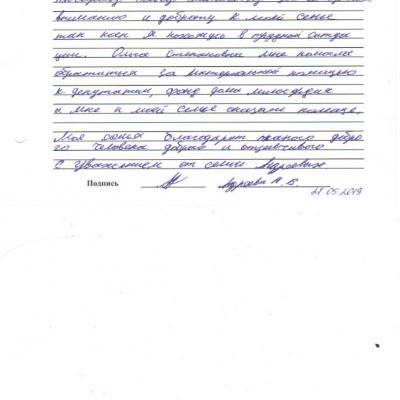 вниманию и доброту к моей семье
так как я нахожусь в трудной ситуа
ции. Ольга Степановна мне помогла
обратиться за материальной помощью
к депутатам, фонд дали милосердия
и мне и моей семье оказали помощь.
Моя семья благодарит такого добро
го человека доброго и отзывчивого
с уважением от семьи
Подпись
21 05 2019